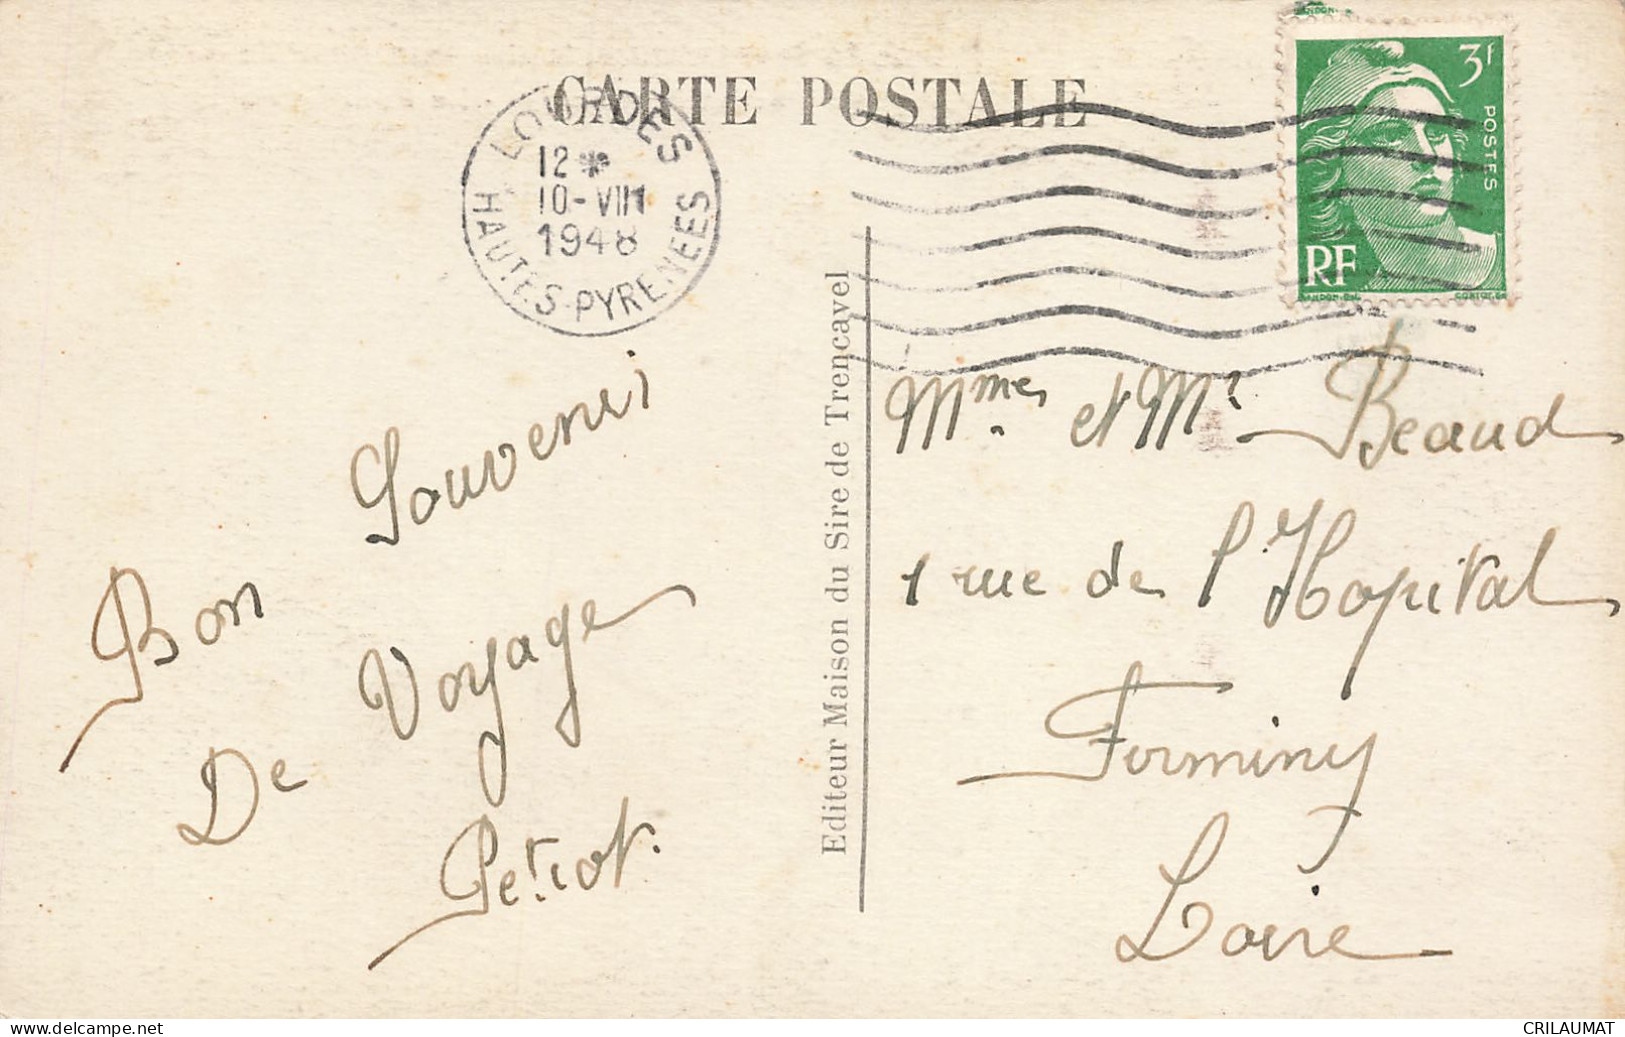 CARTE POSTALE
LOURDES
12*
10-VIII
1948
HAUTES-PYRENEES
3f
POSTES
RF
GANDON-DEL
CORTOT-SC
Editeur Maison du Sire de Trencavel
Bon Souvenir
De Voyage
Petriot.
Mmes et Mr Beaud
1 rue de l'Hopital
Firminy
Loire
www.delcampe.net
CRILAUMAT